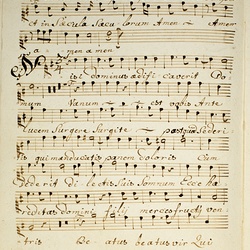 et in Sæcula Sæcu lorum Amen ~ Amen
a ~ men a men
Nisi dominus ædifi caverit Do
mum Vanum ~ ~ est vobis Ante
lucem Surgere Surgite ~ postquam Sederi
tis qui manducatis panem doloris Cum
Dederit di lectis Suis Somnum Ecce hæ
reditas domini filij merces fructus ven
tris Be ~ atus beatus vir Qui